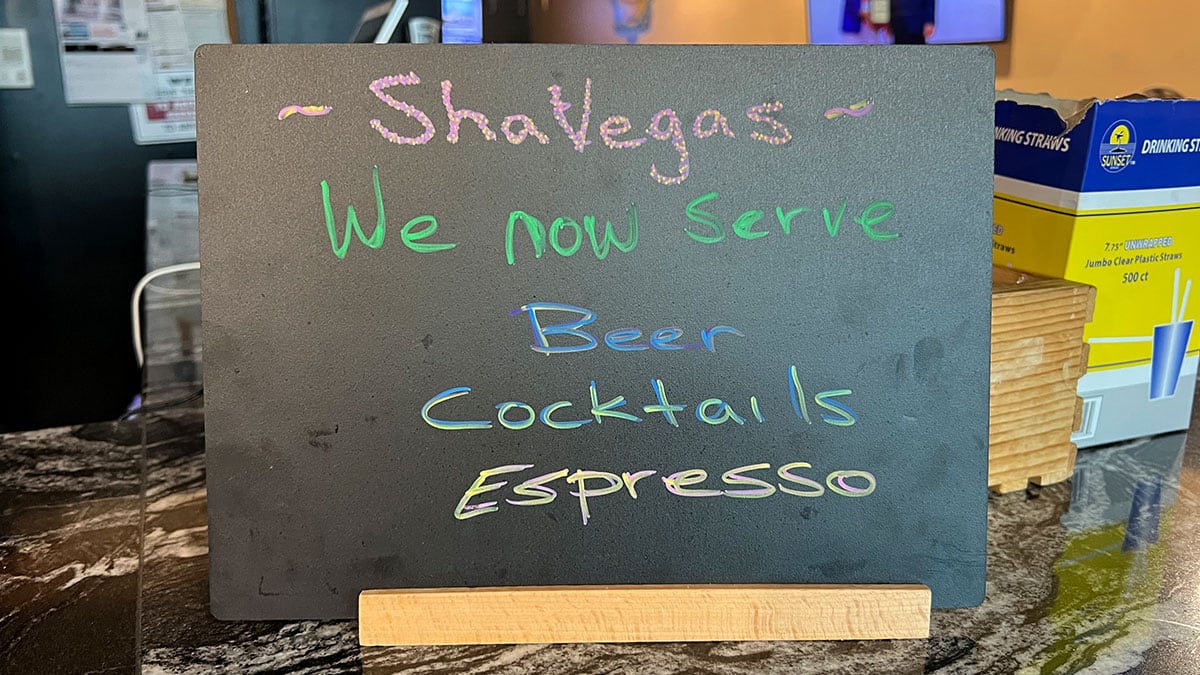 ~ ShaVegas ~
We now serve
Beer
Cocktails
Espresso
DRINKING STRAWS
SUNSET
DRINKING ST
7.75" UNWRAPPED
Jumbo Clear Plastic Straws
500 ct